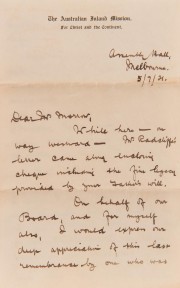 The Australian Inland Mission.
For Christ and the Continent.
Assembly Hall,
Melbourne.
5/7/21.
Dear Mr Morrow,
While here – on
way westward – Mr Radcliffe's
letter came along enclosing
cheque the fine legacy
provided by your will.
On behalf of our
Board, and for myself
also, I would express our
deep appreciation of this last
remembrance by one who was